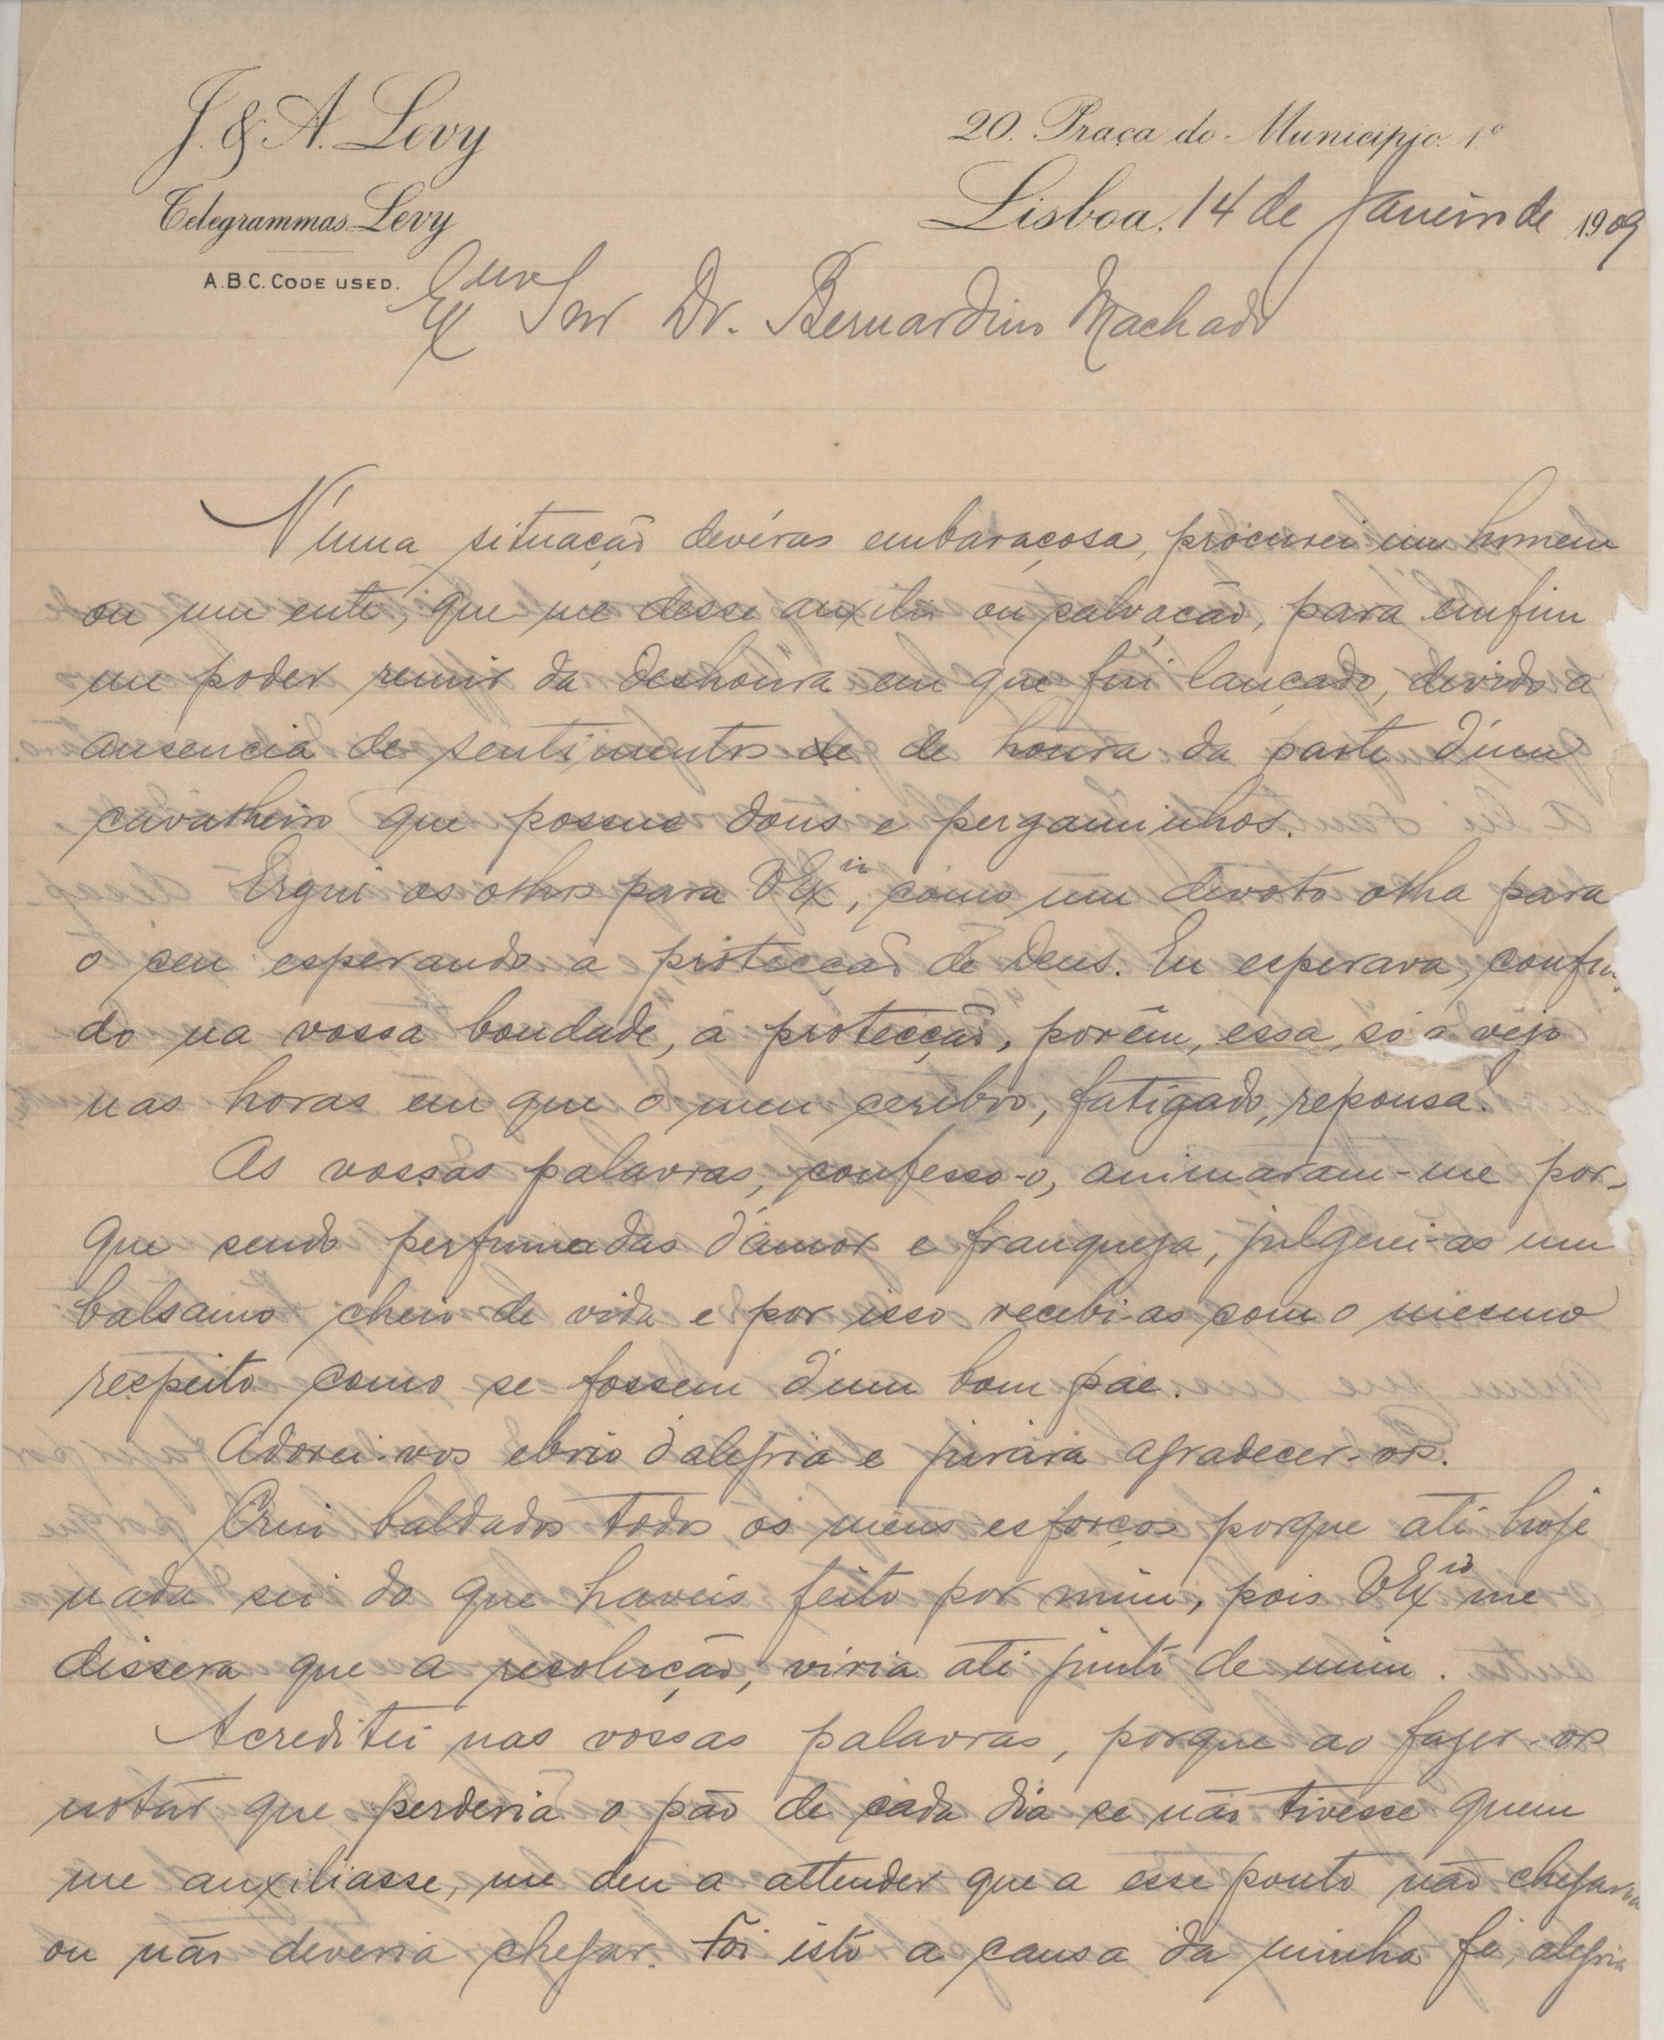 J. & A. Levy
20. Praça do Municipio. 1º
Telegrammas Levy
Lisboa, 14 de Janeiro de 1909
A.B.C. CODE USED.
Exmo Snr Dr. Bernardino Machado
N'uma situação devéras embaraçosa, procurei um homem
ou um ente, que me desse auxilio ou salvação, para emfim
me poder remir da deshonra em que fui lançado, devido a
ausencia de sentimentos de de honra da parte d'um
cavalheiro que possue dons e pergaminhos.
Ergui os olhos para VExia, como um devoto olha para
o ceu esperando a protecção de Deus. Eu esperava, confian
do na vossa bondade, a protecção, porêm, essa, só a vejo
nas horas em que o meu cerebro, fatigado, repousa.
As vossas palavras, confesso-o, animaram-me por-
que sendo perfumadas d'amor e franqueza, julguei-as um
balsamo cheio de vida e por isso recebi-as com o mesmo
respeito como se fossem d'um bom pae.
Adorei-vos ebrio d'alegria e jurára agradecer-vos.
Criu baldados todos os meus esforços porque até hoje
nada sei do que haveis feito por mim, pois VExia me
dissera que a resolução, viria até junto de mim.
Acreditei nas vossas palavras, porque ao fazer-vos
notar que perderia o pão de cada dia se não tivesse quem
me auxiliasse, me deu a attender que a esse ponto não chegaria
ou não deveria chegar. Foi isto a causa da minha fé, alegria